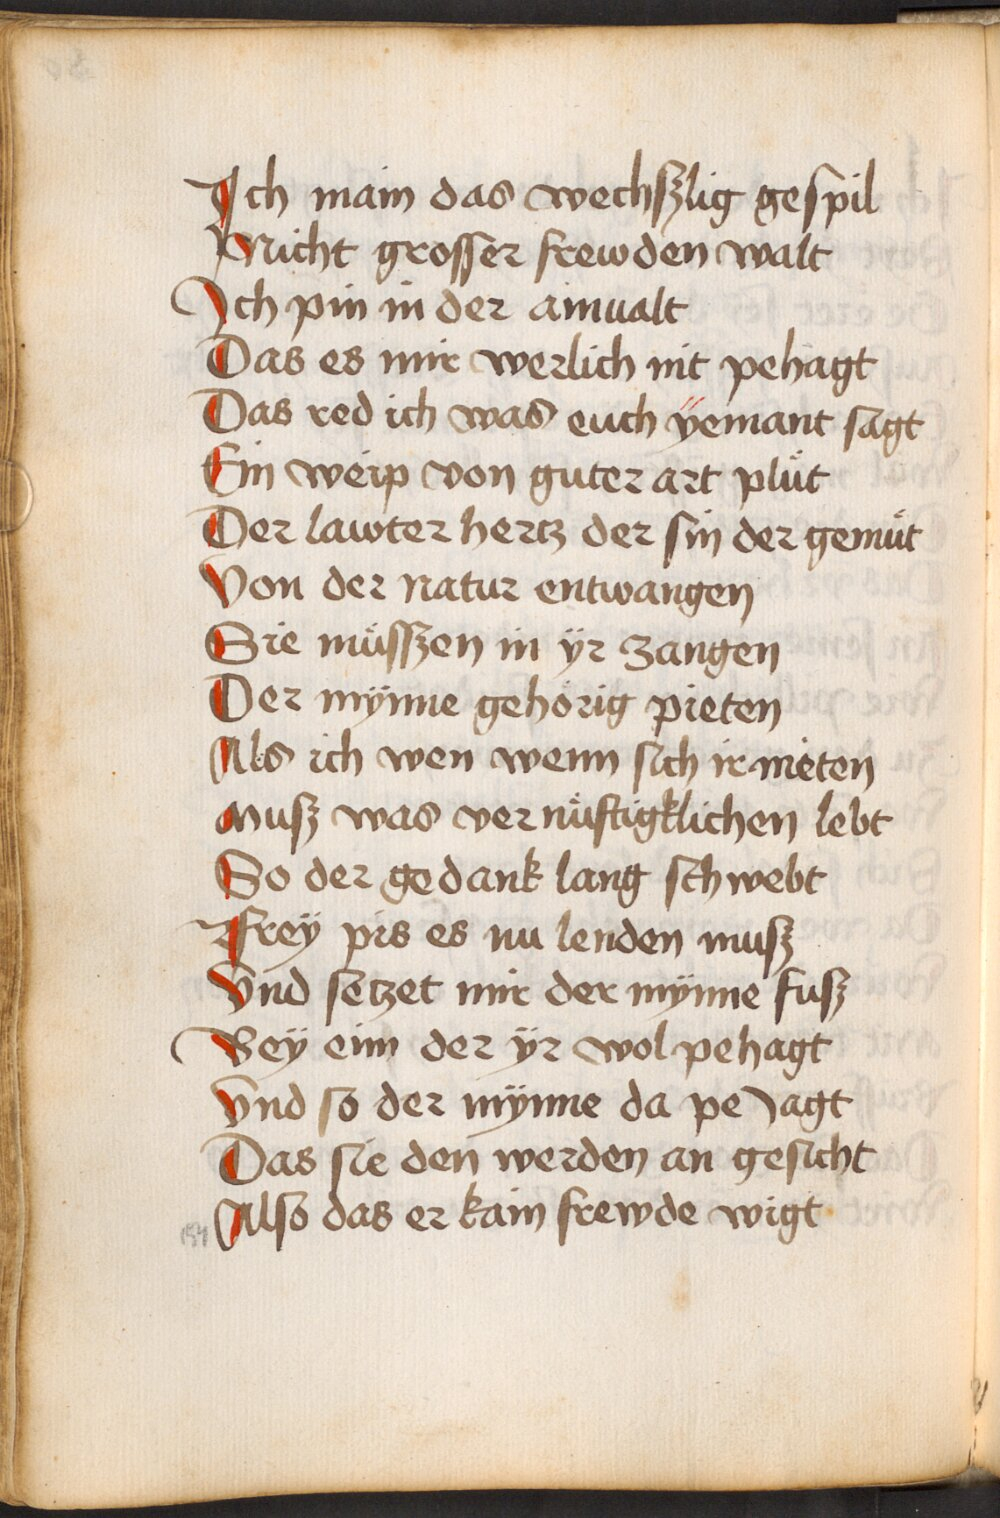 Ich main das wechßlig gespil
Nicht grosser frewden walt
Ich pin in der ainualt
Das es mir werlich nit pehagt
Das red ich was euch ÿemant sagt
Ein weip von guter art plüt
Der lawter hertz der sin der gemüt
Von der natur entwangen
Sie müsßen in ÿr zangen
Der mÿnne gehörig pieten
Als ich wen wenn sich ir nieten
Muß was ver nüftigklichen lebt
So der gedank lang schwebt
Frey pis es nu lenden muß
Vnd setzet mir der mÿnne fuß
Bey eim der ÿr wol pehagt
Vnd so der mÿnne da pe Jagt
Das sie den werden an gesicht
Also das er kain frewde wigt